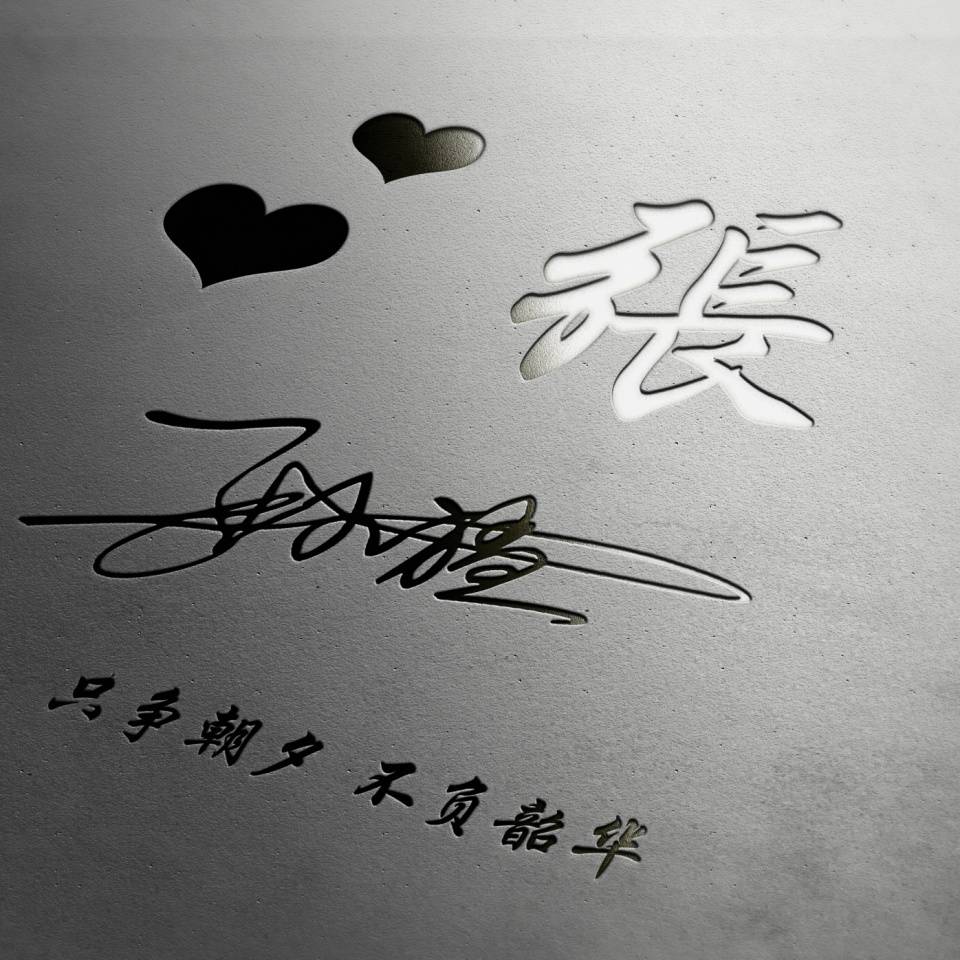 張
只争朝夕 不负韶华